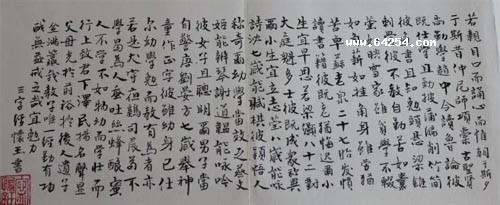 若親目口而誦心而惟朝于斯夕
于斯昔仲尼師項橐古聖賢
尚勤學趙中令讀魯論彼
既仕學且勤披蒲編削竹簡
彼無書且知勉頭懸梁錐
刺股彼不教自勤苦如囊
螢如映雪家雖貧學不輟
如負薪如掛角身雖勞猶
苦卓蘇老泉二十七始發憤
讀書籍彼既老猶悔遲爾小
生宜早思若梁灝八十二對
大庭魁多士彼既成衆稱異
爾小生宜立志瑩八歲能詠
詩泌七歲能賦棋彼穎悟人
稱奇爾幼學當效之蔡文
姬能辨琴謝道韞能詠吟
彼女子且聰明爾男子當
自警唐劉晏方七歲舉神
童作正字彼雖幼身已仕
爾幼學勉而致有為者亦
若是犬守夜雞司晨苟不
學曷為人蠶吐絲蜂釀蜜
人不學不如物幼而學壯而
行上致君下澤民揚名聲顯
父母光於前裕於後人遺子
金滿籯我教子唯一經勤有功
戲無益戒之哉宜勉力
三字經懷玉書
www.64254.com